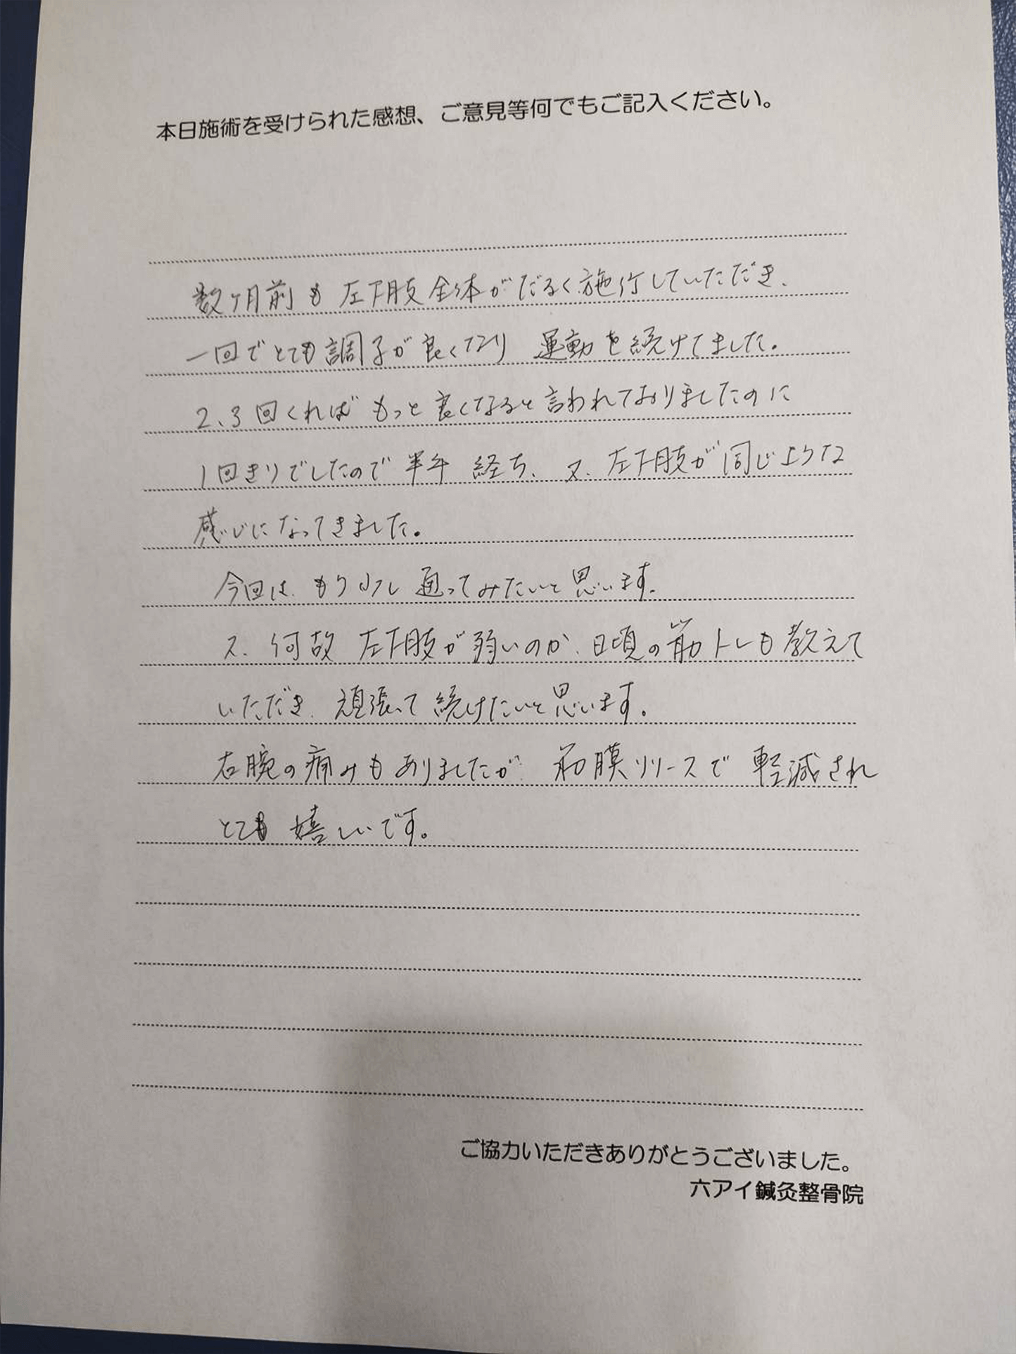 本日施術を受けられた感想、ご意見等何でもご記入ください。
数ヶ月前も 左下肢 全体がだるく施行していただき、
一回でとても調子が良くなり 運動を続けてました。
2、3回くれば もっと良くなると言われておりましたのに
1回きりでしたので半年 経ち、又、左下肢が同じような
感じになってきました。
今回は、もう少し 通ってみたいと思います。
又、何故 左下肢が弱いのか、日頃の筋トレも教えて
いただき、頑張って続けたいと思います。
右腕の痛みもありましたが、筋膜リリースで 軽減され
とても 嬉しいです。
ご協力いただきありがとうございました。
六アイ鍼灸整骨院